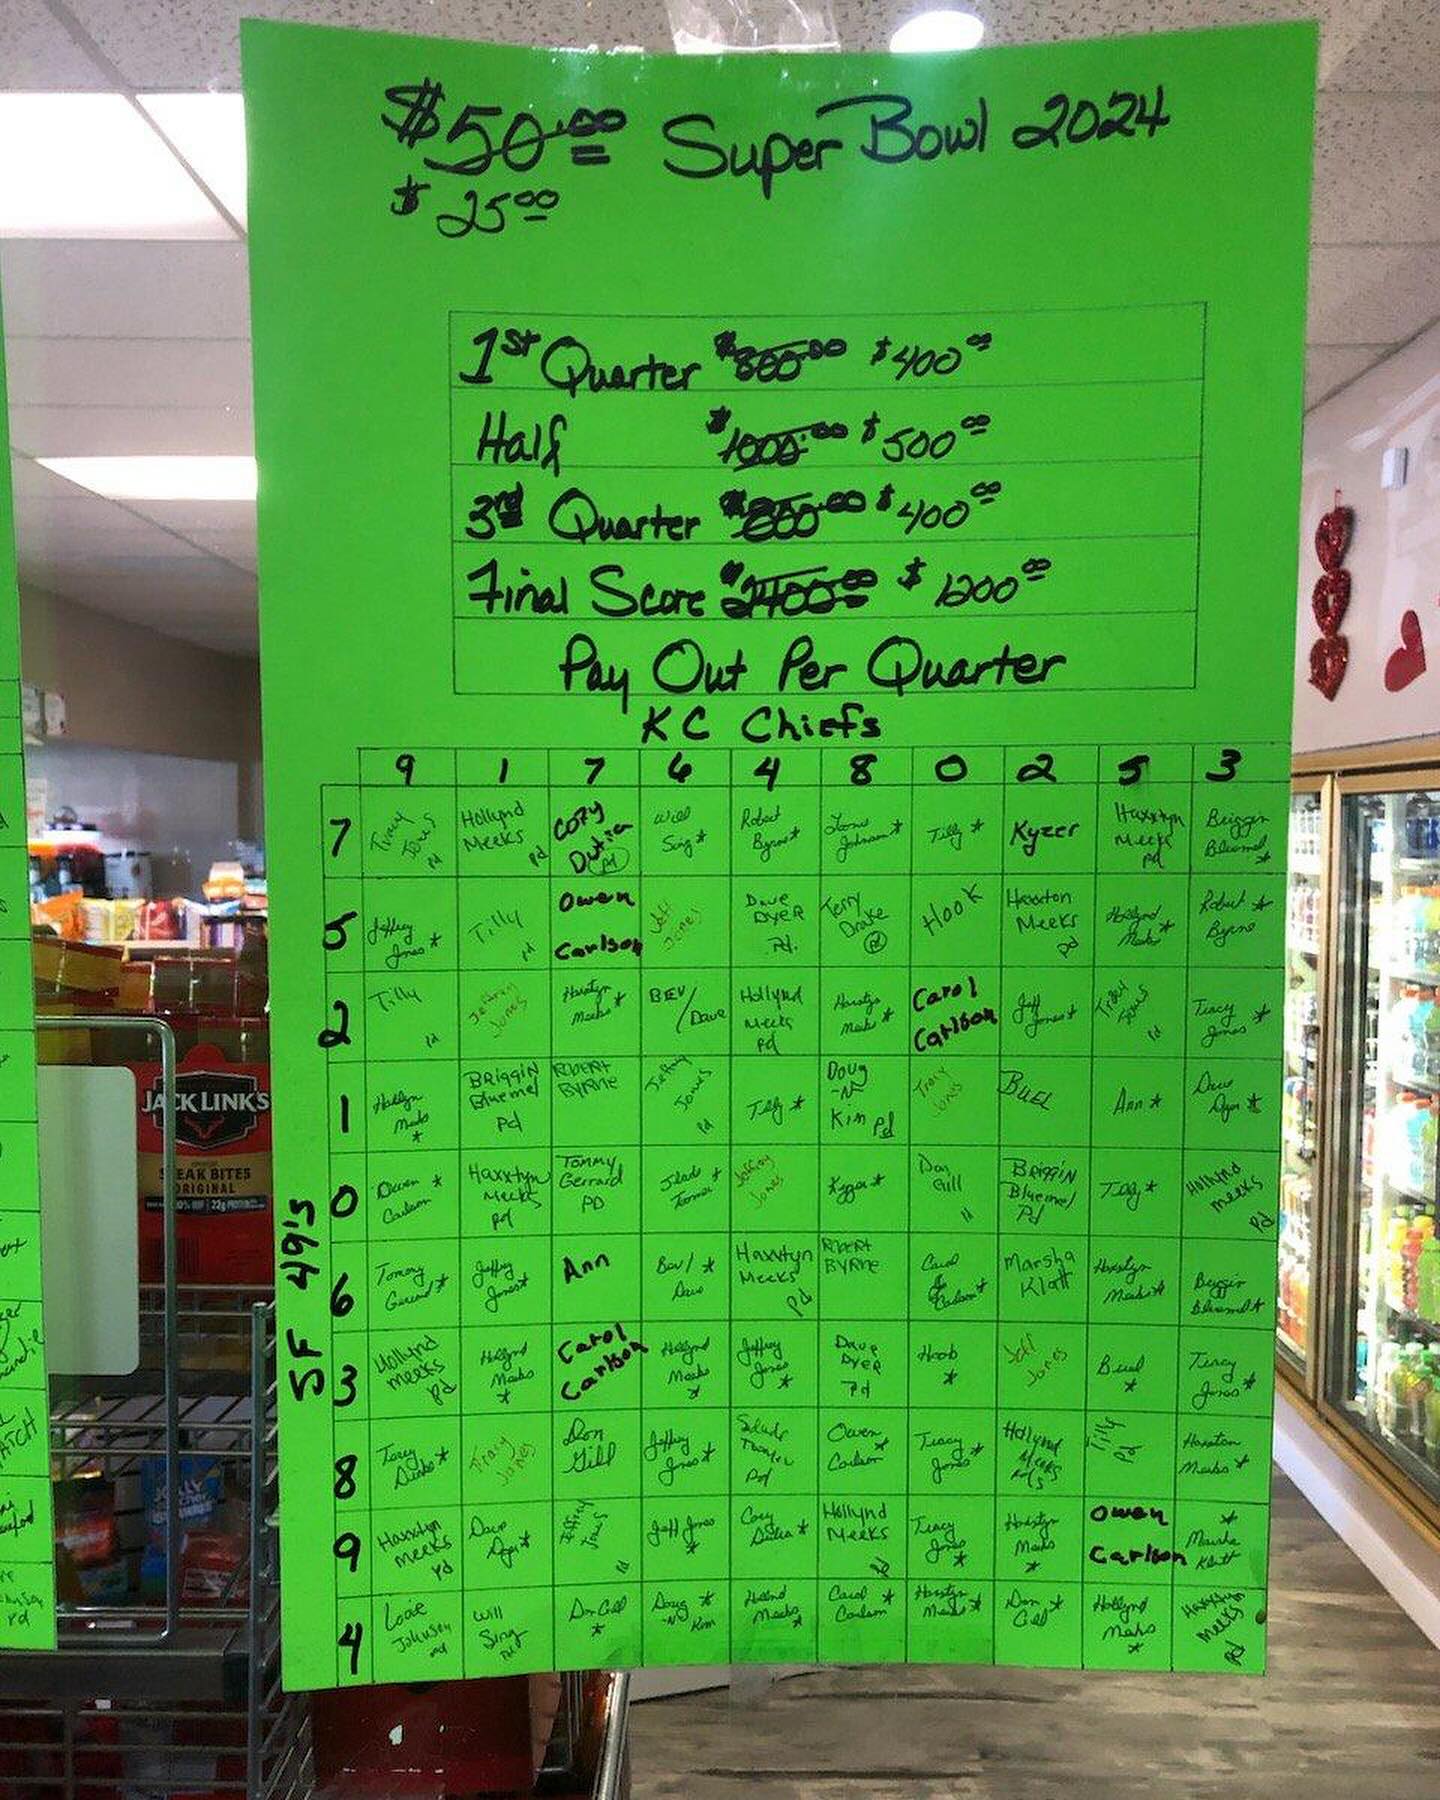 $50.00 Super Bowl 2024
$25.00
1st Quarter $800.00 $400.00
Half $1000.00 $500.00
3rd Quarter $400.00
Final Score $2400.00 $1200.00
Pay Out Per Quarter
KC Chiefs
9 1 7 6 4 8 0 2 5 3
SF 49's
7 Tracy Jones Pd Hollynd Meeks pd Cory pd Will Sing * Robert Byrne * Johnson * Tilly * Kyzer Haxxtyn Meeks pd Briggin Bluemel *
5 Jeffrey Jones * Tilly pd Owen Carlson Jeff Jones Dave Dyer Pd. Terry Drake pd Hook Haxxton Meeks pd Hollynd Meeks * Robert * Byrne
2 Tilly pd Jeffrey Jones Haxxtyn Meeks * BEV / Dave Hollynd Meeks Pd Haxxtyn Meeks * Carol Carlson Jeff Jones * Tracy Jones pd Tracy Jones *
1 Meeks * BRIGGIN Bluemel Pd ROBERT BYRNE Jeffrey Jones pd Tilly * Doug -N- Kim Pd Tracy Jones BUEL Ann * Dave Dyer *
0 Owen * Carlson Haxxtyn Meeks Pd Tommy Gerrard PD * Jeffrey Jones Kyzer * Don Gill BRIGGIN Bluemel Pd Tilly * Hollynd Meeks Pd
6 Tommy Gerrard * Jeffrey Jones * Ann Bev/ * Dave Haxxtyn Meeks Pd ROBERT BYRNE Carol Carlson * Marsha Klatt Haxxtyn Meeks * Briggin Bluemel *
3 Hollynd Meeks Pd Hollynd Meeks * Carol Carlson Hollynd Meeks * Jeffrey Jones * Dave Dyer Pd Hook * Jeff Jones Buel * Tracy Jones *
8 Terry Drake * Tracy Jones Don Gill Jeffrey Jones * Pd Owen * Carlson Tracy Jones * Hollynd Meeks Tilly Pd Haxxton Meeks *
9 Haxxtyn Meeks Pd Dave Dyer * Jeffrey Jones pd Jeff Jones * Cory * Hollynd Meeks Pd Tracy Jones * Haxxtyn Meeks * Owen Carlson * Marsha Klatt
4 Johnson pd Will Sing pd Don Gill * Doug * -N- Kim Hollynd Meeks * Carol * Carlson Haxxtyn Meeks * Don * Gill Hollynd Meeks * Haxxtyn Meeks Pd
JACK LINK'S
STEAK BITES
ORIGINAL